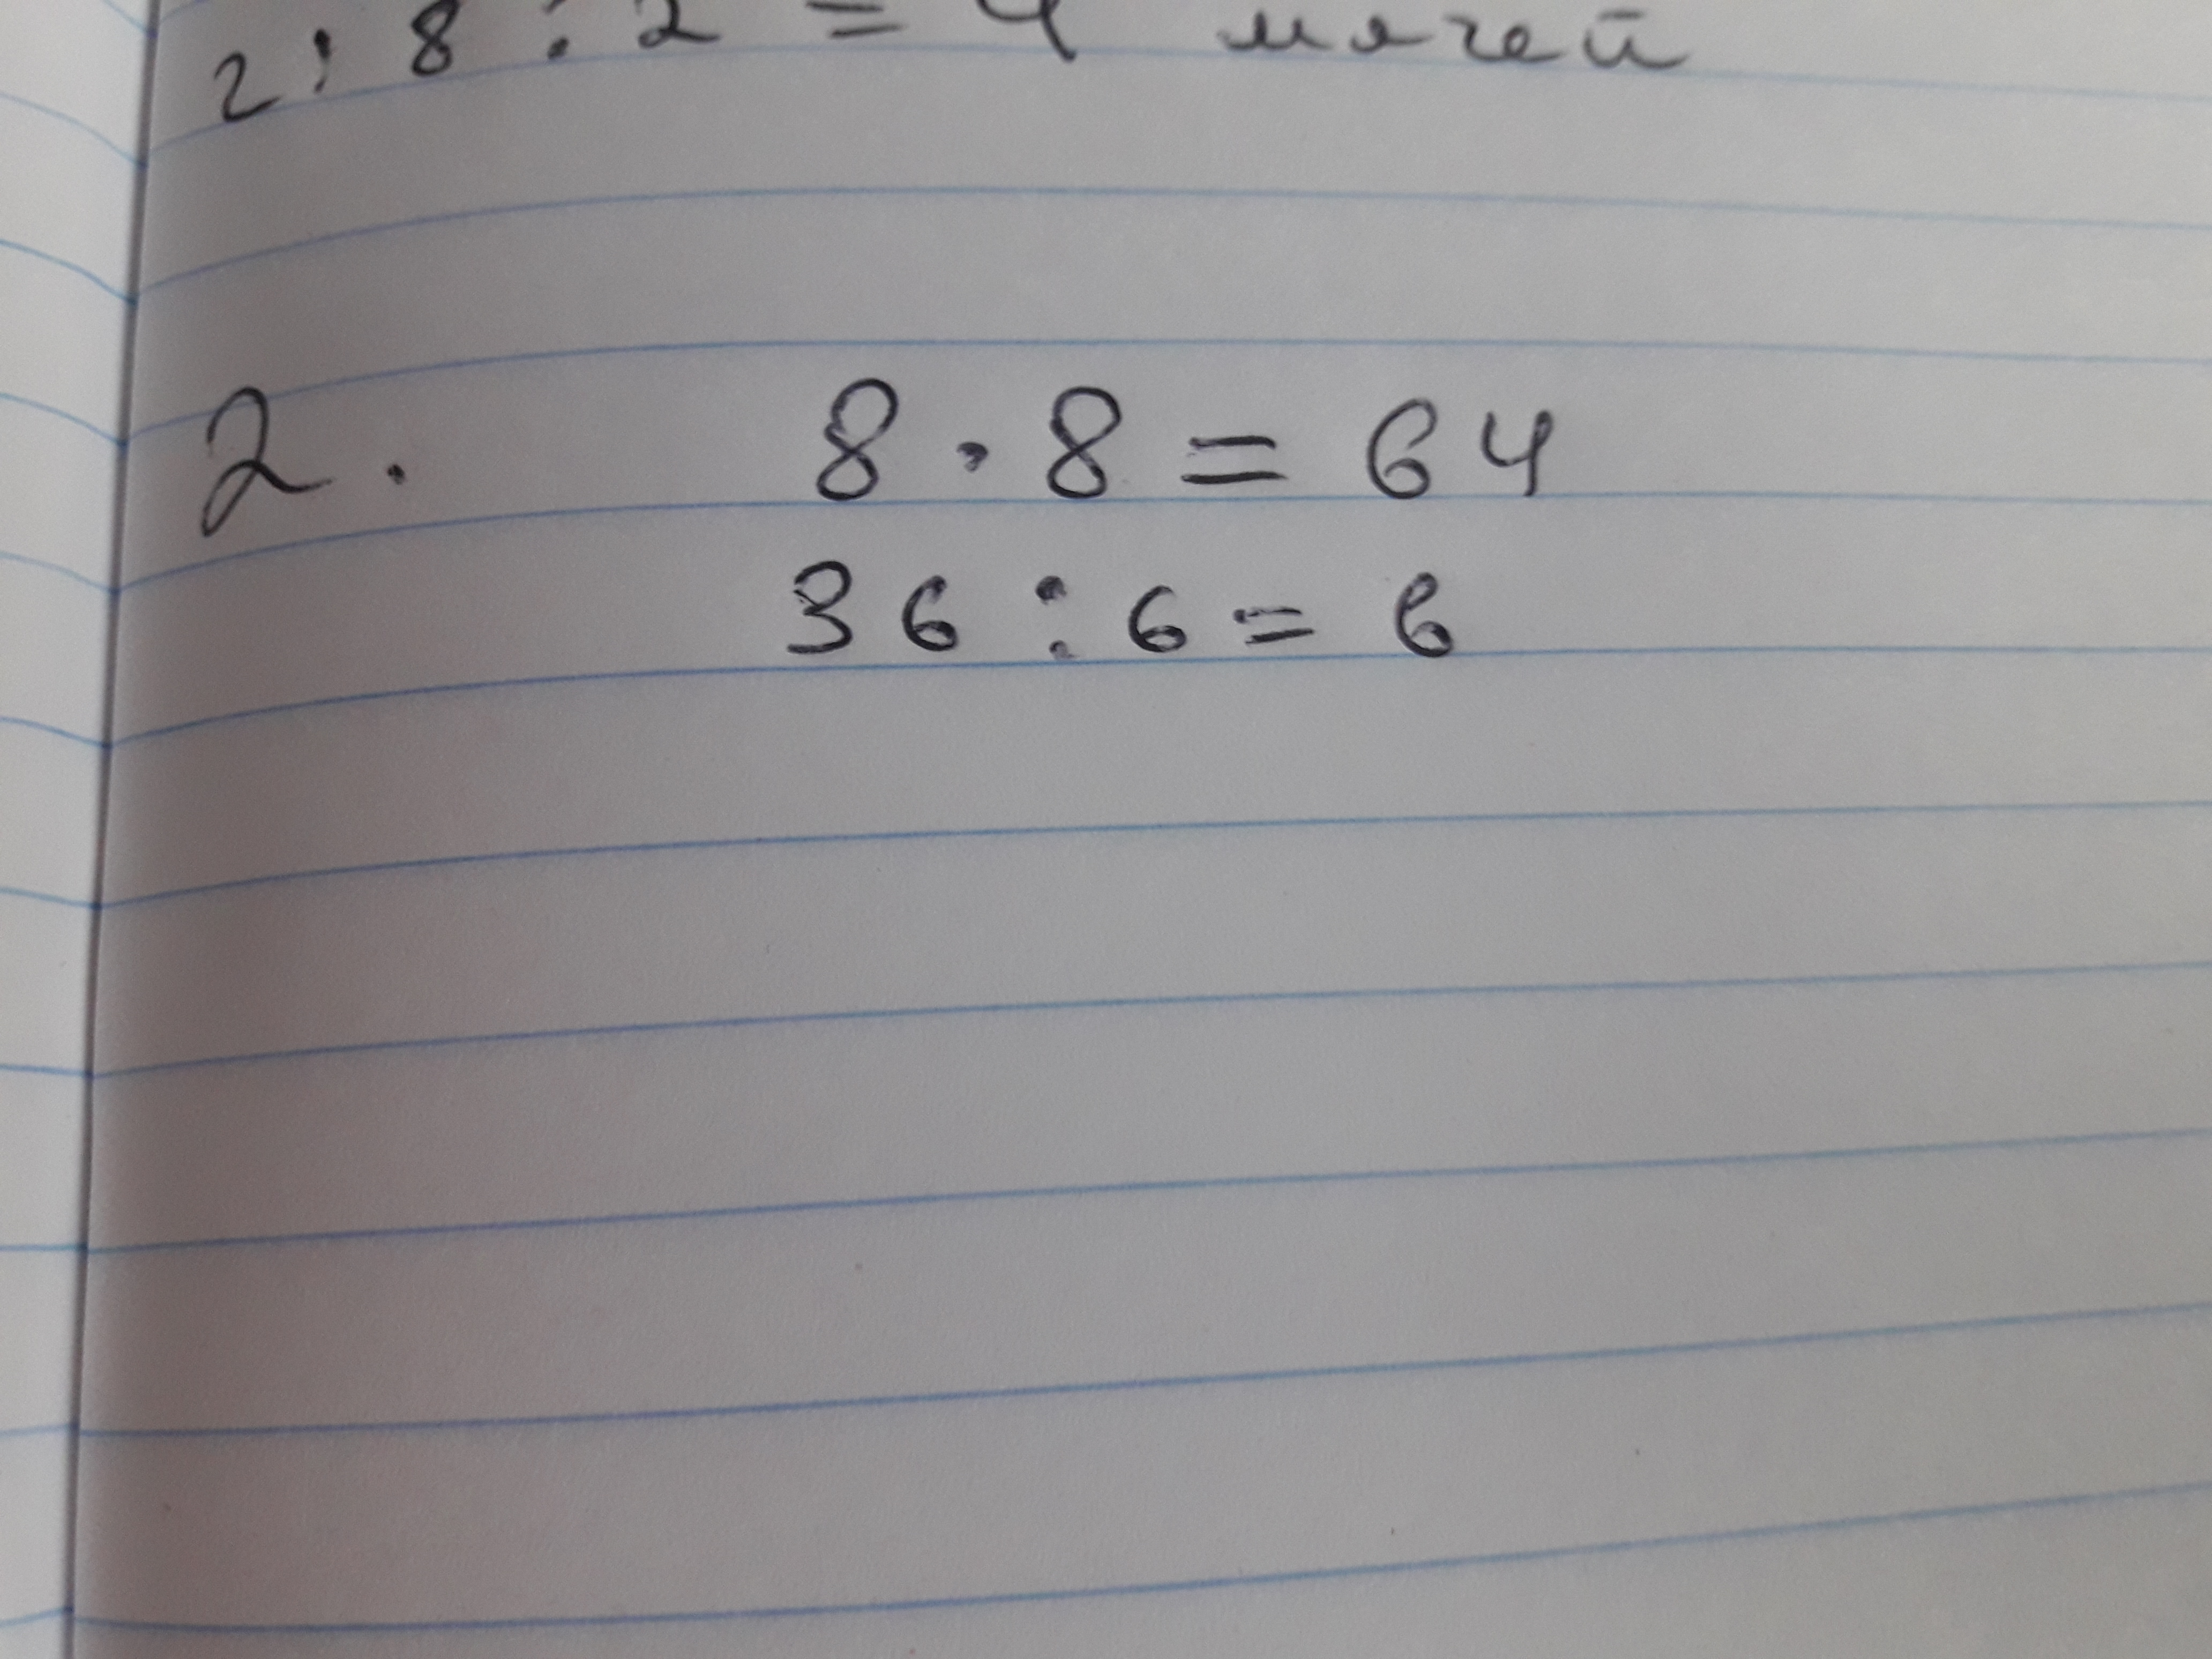 2) 8 : 2 = 4 мячей
2. 8 · 8 = 64
36 : 6 = 6